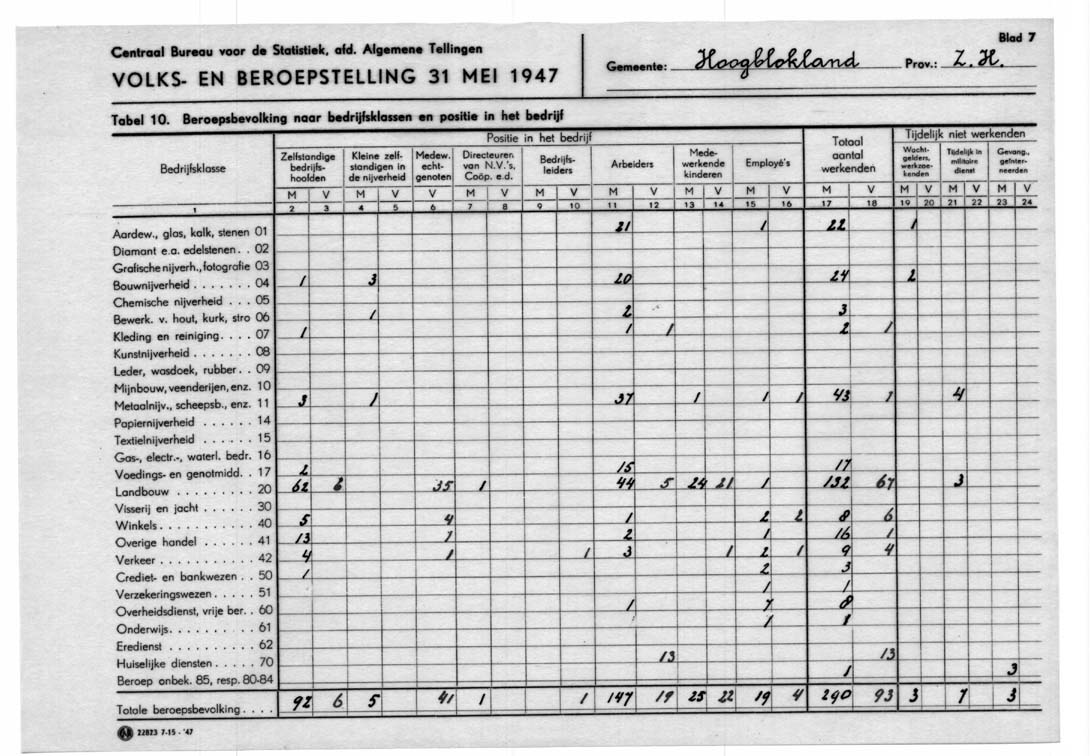 Centraal Bureau voor de Statistiek, afd. Algemene Tellingen
VOLKS- EN BEROEPSTELLING 31 MEI 1947
Blad 7
Gemeente: Hoogblokland Prov.: Z.H.
Tabel 10. Beroepsbevolking naar bedrijfsklassen en positie in het bedrijf
Bedrijfsklasse
Positie in het bedrijf
Totaal aantal werkenden
Tijdelijk niet werkenden
Zelfstandige bedrijfs-hoofden
Kleine zelf-standigen in de nijverheid
Medew. echt-genoten
Directeuren van N.V.'s, Coöp. e.d.
Bedrijfs-leiders
Arbeiders
Mede-werkende kinderen
Employé's
Wacht-gelders, werkzoe-kenden
Tijdelijk in militaire dienst
Gevang., geïnter-neerden
M V M V V M V M V M V M V M V M V M V M V M V
1 2 3 4 5 6 7 8 9 10 11 12 13 14 15 16 17 18 19 20 21 22 23 24
Aardew., glas, kalk, stenen 01 21 1 22 1
Diamant e.a. edelstenen . . 02
Grafische nijverh., fotografie 03
Bouwnijverheid . . . . . . . 04 1 3 20 24 2
Chemische nijverheid . . . 05
Bewerk. v. hout, kurk, stro 06 1 2 3
Kleding en reiniging . . . . 07 1 1 1 2 1
Kunstnijverheid . . . . . . . 08
Leder, wasdoek, rubber . . 09
Mijnbouw, veenderijen, enz. 10
Metaalnijv., scheepsb., enz. 11 3 1 37 1 1 1 43 1 4
Papiernijverheid . . . . . . 14
Textielnijverheid . . . . . . 15
Gas-, electr.-, waterl. bedr. 16
Voedings- en genotmidd. . 17 2 15 17
Landbouw . . . . . . . . . 20 62 6 35 1 44 5 24 21 1 132 67 3
Visserij en jacht . . . . . . 30
Winkels . . . . . . . . . . . 40 5 4 1 2 2 8 6
Overige handel . . . . . . 41 13 1 2 1 16 1
Verkeer . . . . . . . . . . . 42 4 1 1 3 1 2 1 9 4
Crediet- en bankwezen . . 50 1 2 3
Verzekeringswezen . . . . . 51 1 1
Overheidsdienst, vrije ber. . 60 1 7 8
Onderwijs . . . . . . . . . . 61 1 1
Eredienst . . . . . . . . . . 62
Huiselijke diensten . . . . . 70 13 13
Beroep onbek. 85, resp. 80-84 1 3
Totale beroepsbevolking . . . . 92 6 5 41 1 1 147 19 25 22 19 4 290 93 3 7 3
22823 7-15 - '47